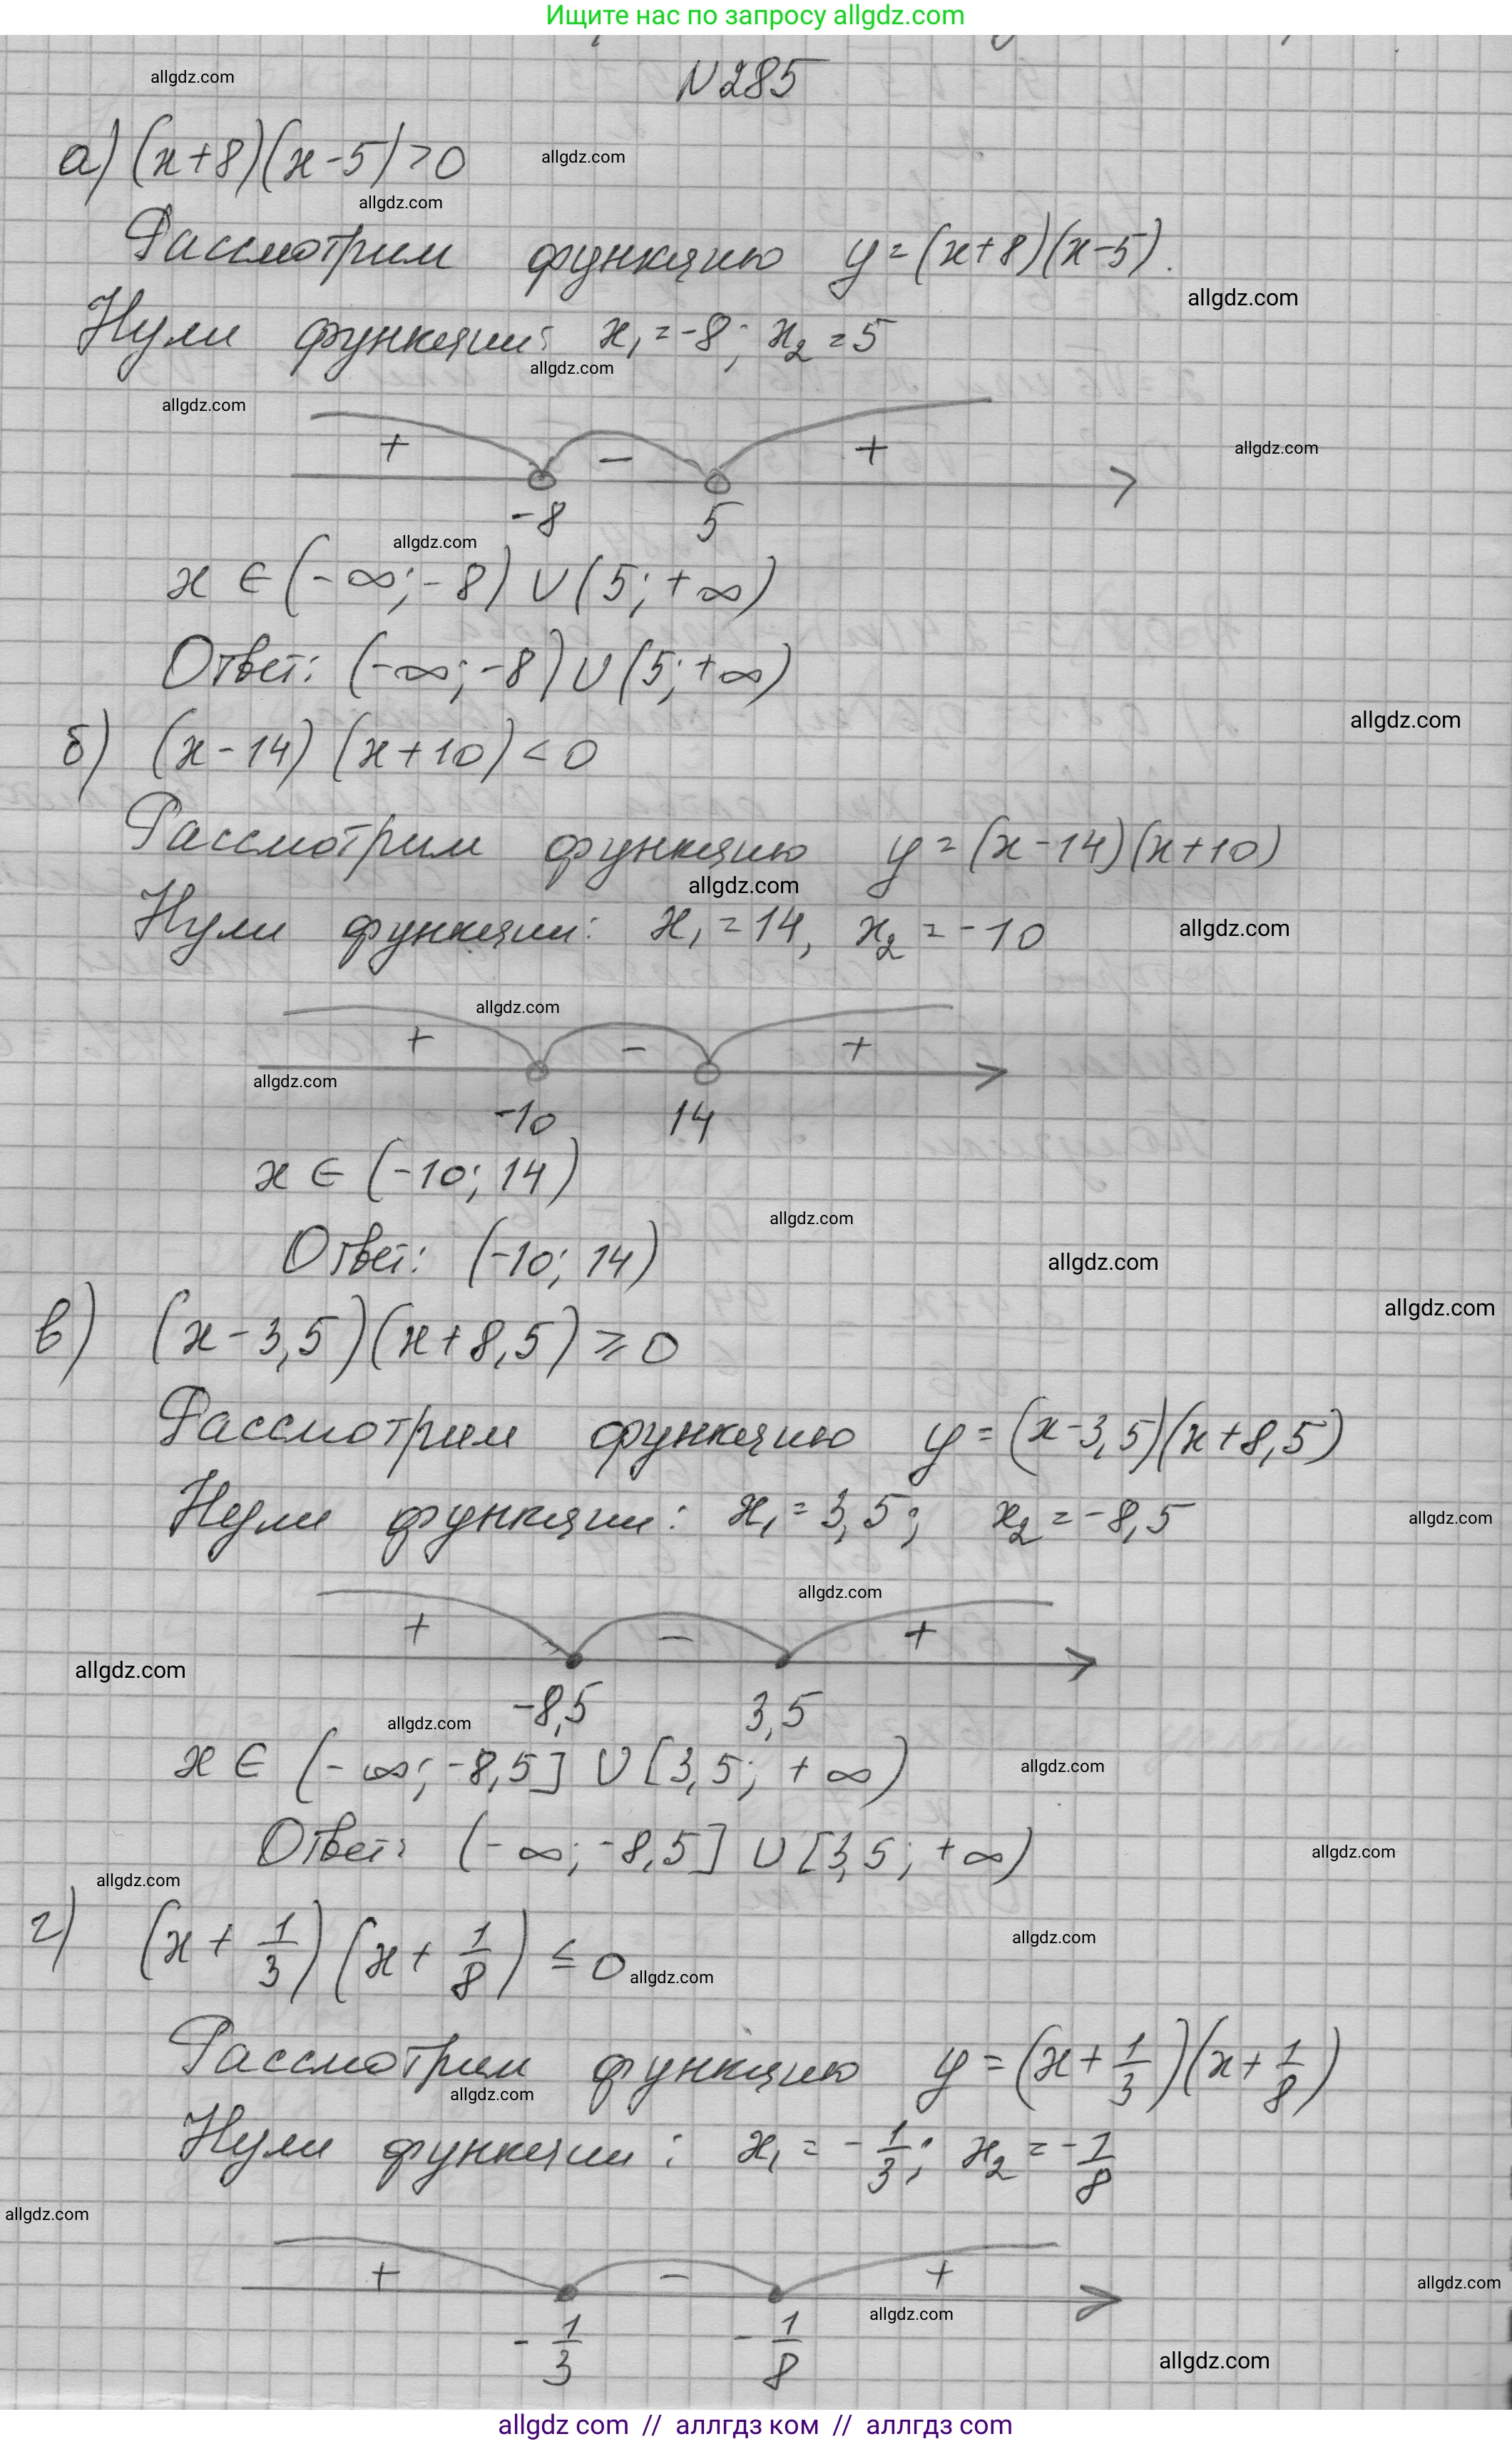 Ищите нас по запросу allgdz.com
N 285
allgdz.com
а) (x+8)(x-5)>0
allgdz.com
allgdz.com
Рассмотрим функцию y=(x+8)(x-5).
allgdz.com
Нули функции: x₁=-8; x₂=5
allgdz.com
allgdz.com
+ - +
allgdz.com
-8 5
allgdz.com
x ∈ (-∞; -8) ∪ (5; +∞)
Ответ: (-∞; -8) ∪ (5; +∞)
allgdz.com
б) (x-14) (x+10) < 0
Рассмотрим функцию y=(x-14)(x+10)
allgdz.com
Нули функции: x₁=14, x₂=-10
allgdz.com
allgdz.com
+ - +
allgdz.com
-10 14
x ∈ (-10; 14)
allgdz.com
Ответ: (-10; 14)
allgdz.com
allgdz.com
в) (x-3,5)(x+8,5) ≥ 0
Рассмотрим функцию y=(x-3,5)(x+8,5)
Нули функции: x₁=3,5; x₂=-8,5
allgdz.com
allgdz.com
+ - +
allgdz.com
-8,5 3,5
allgdz.com
x ∈ (-∞; -8,5] ∪ [3,5; +∞)
allgdz.com
Ответ: (-∞; -8,5] ∪ [3,5; +∞)
allgdz.com
allgdz.com
г) (x + 1/3) (x + 1/8) ≤ 0
allgdz.com
allgdz.com
Рассмотрим функцию y=(x + 1/3)(x + 1/8)
allgdz.com
Нули функции: x₁ = -1/3; x₂ = -1/8
allgdz.com
+ - +
allgdz.com
allgdz.com
-1/3 -1/8
allgdz.com
allgdz com // аллгдз ком // аллгдз com